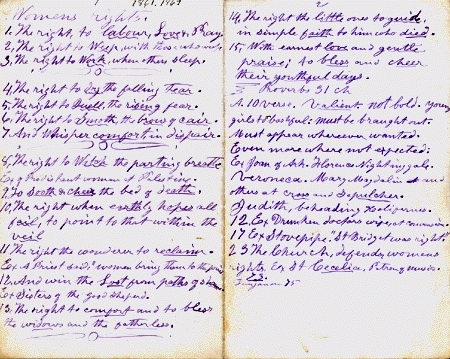 1861, 1969
Womens rights.
1, The right, to labour, Love, & Pray
2, The right to Weep, with those who weep.
3, The right to Work, when others sleep.
4, The right to Dry the falling Tear.
5, The right to Quell, the rising fear.
6, The right to Smooth, the brow of cair.
7. And Whisper comfort in dispair.
8, The right to Watch the parting breathe
Ex of the women of Palestine.
9, To Sooth & cheer the bed of death.
10, The right when earthly hopes all
fail, to point to that within the
veil
11, The right the wanderer to reclaim.
Ex A Priest said, "women bring them to the
12, And win the Lost from paths of shame
Ex Sisters of the good shepard.
13, The right to comfort and to bless
the widows and the fatherless.
2
14, The right the little ones to guide,
in simple faith to him who died.
15, With earnest love and gentle
praise; to bless and cheer
their youthful days.
Proverbs 31 ch
A 10 verse. Valient, not bold. Young
girls to bashful; must be braught out.
Must appear wherever wanted.
Even more where not expected;
Ex, Joan of Ark. Florence Nightinggale.
Veronica. Mary Magdalin and
others at cross and Sepulcher.
Judith, beheading Holifernes.
12 Ex Drunken doctors wife, at
17 Ex Stovepipe, "St Bridget was right"
23 The Church, defends, womens
rights Ex St Cecelia, Patron of music.